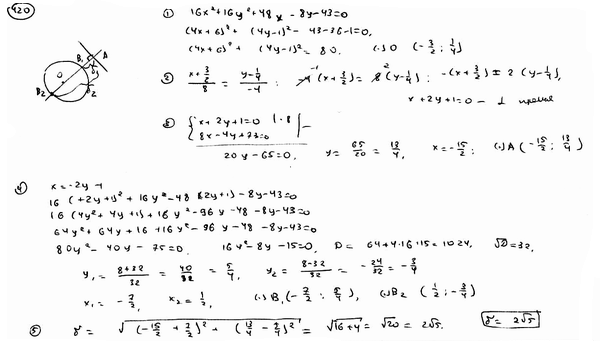 420
① 16x²+16y²+48x-8y-43=0
(4x+6)²+(4y-1)²-43-36-1=0,
(4x+6)²+(4y-1)²=80. (.)O (-3/2; 1/4)
② (x+3/2)/8 = (y-1/4)/-4; -4⁻¹(x+3/2)=8²(y-1/4); -(x+3/2)=2(y-1/4),
x+2y+1=0 - ⊥ прямая
③ {x+2y+1=0 |·8
8x-4y+73=0 | -
20y-65=0, y=65/20=13/4, x=-15/2; (.)A(-15/2; 13/4)
O B₁ A B₂
④ x=-2y-1
16(+2y+1)²+16y²-48(2y+1)-8y-43=0
16(4y²+4y+1)+16y²-96y-48-8y-43=0
64y²+64y+16+16y²-96y-48-8y-43=0
80y²-40y-75=0. 16y²-8y-15=0, D=64+4·16·15=1024, √D=32,
y₁=(8+32)/32=40/32=5/4, y₂=(8-32)/32=-24/32=-3/4
x₁=-7/2, x₂=1/2, (.)B₁(-7/2; 5/4), (.)B₂(1/2; -3/4)
⑤ r=√((-15/2+7/2)²+(13/4-5/4)²)=√(16+4)=√20=2√5. r=2√5